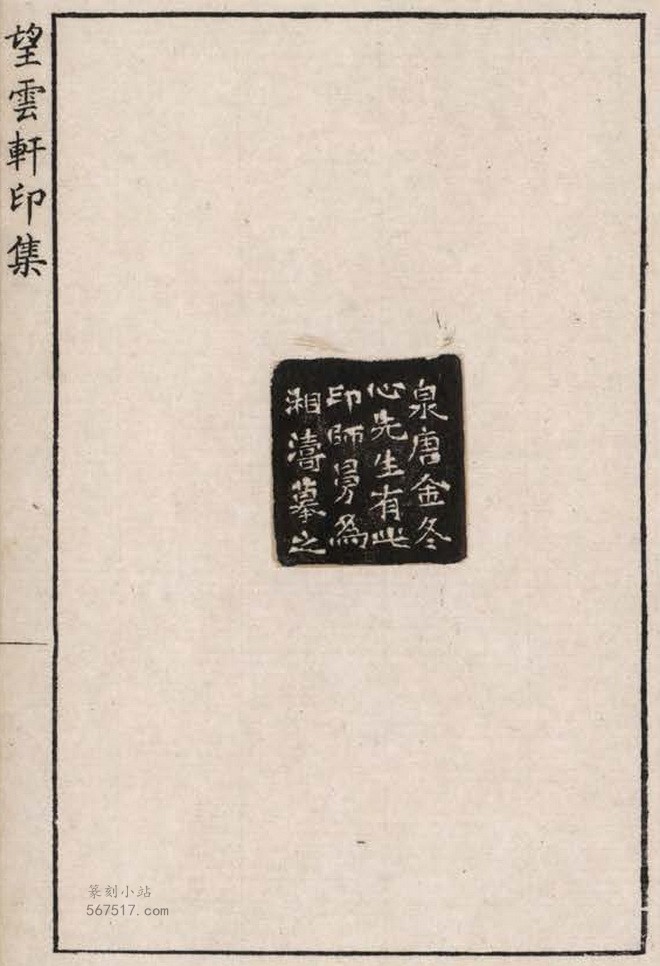 望雲軒印集
泉唐金冬
心先生有此
印師曼為
湘濤摹之
篆刻小站
567517.com